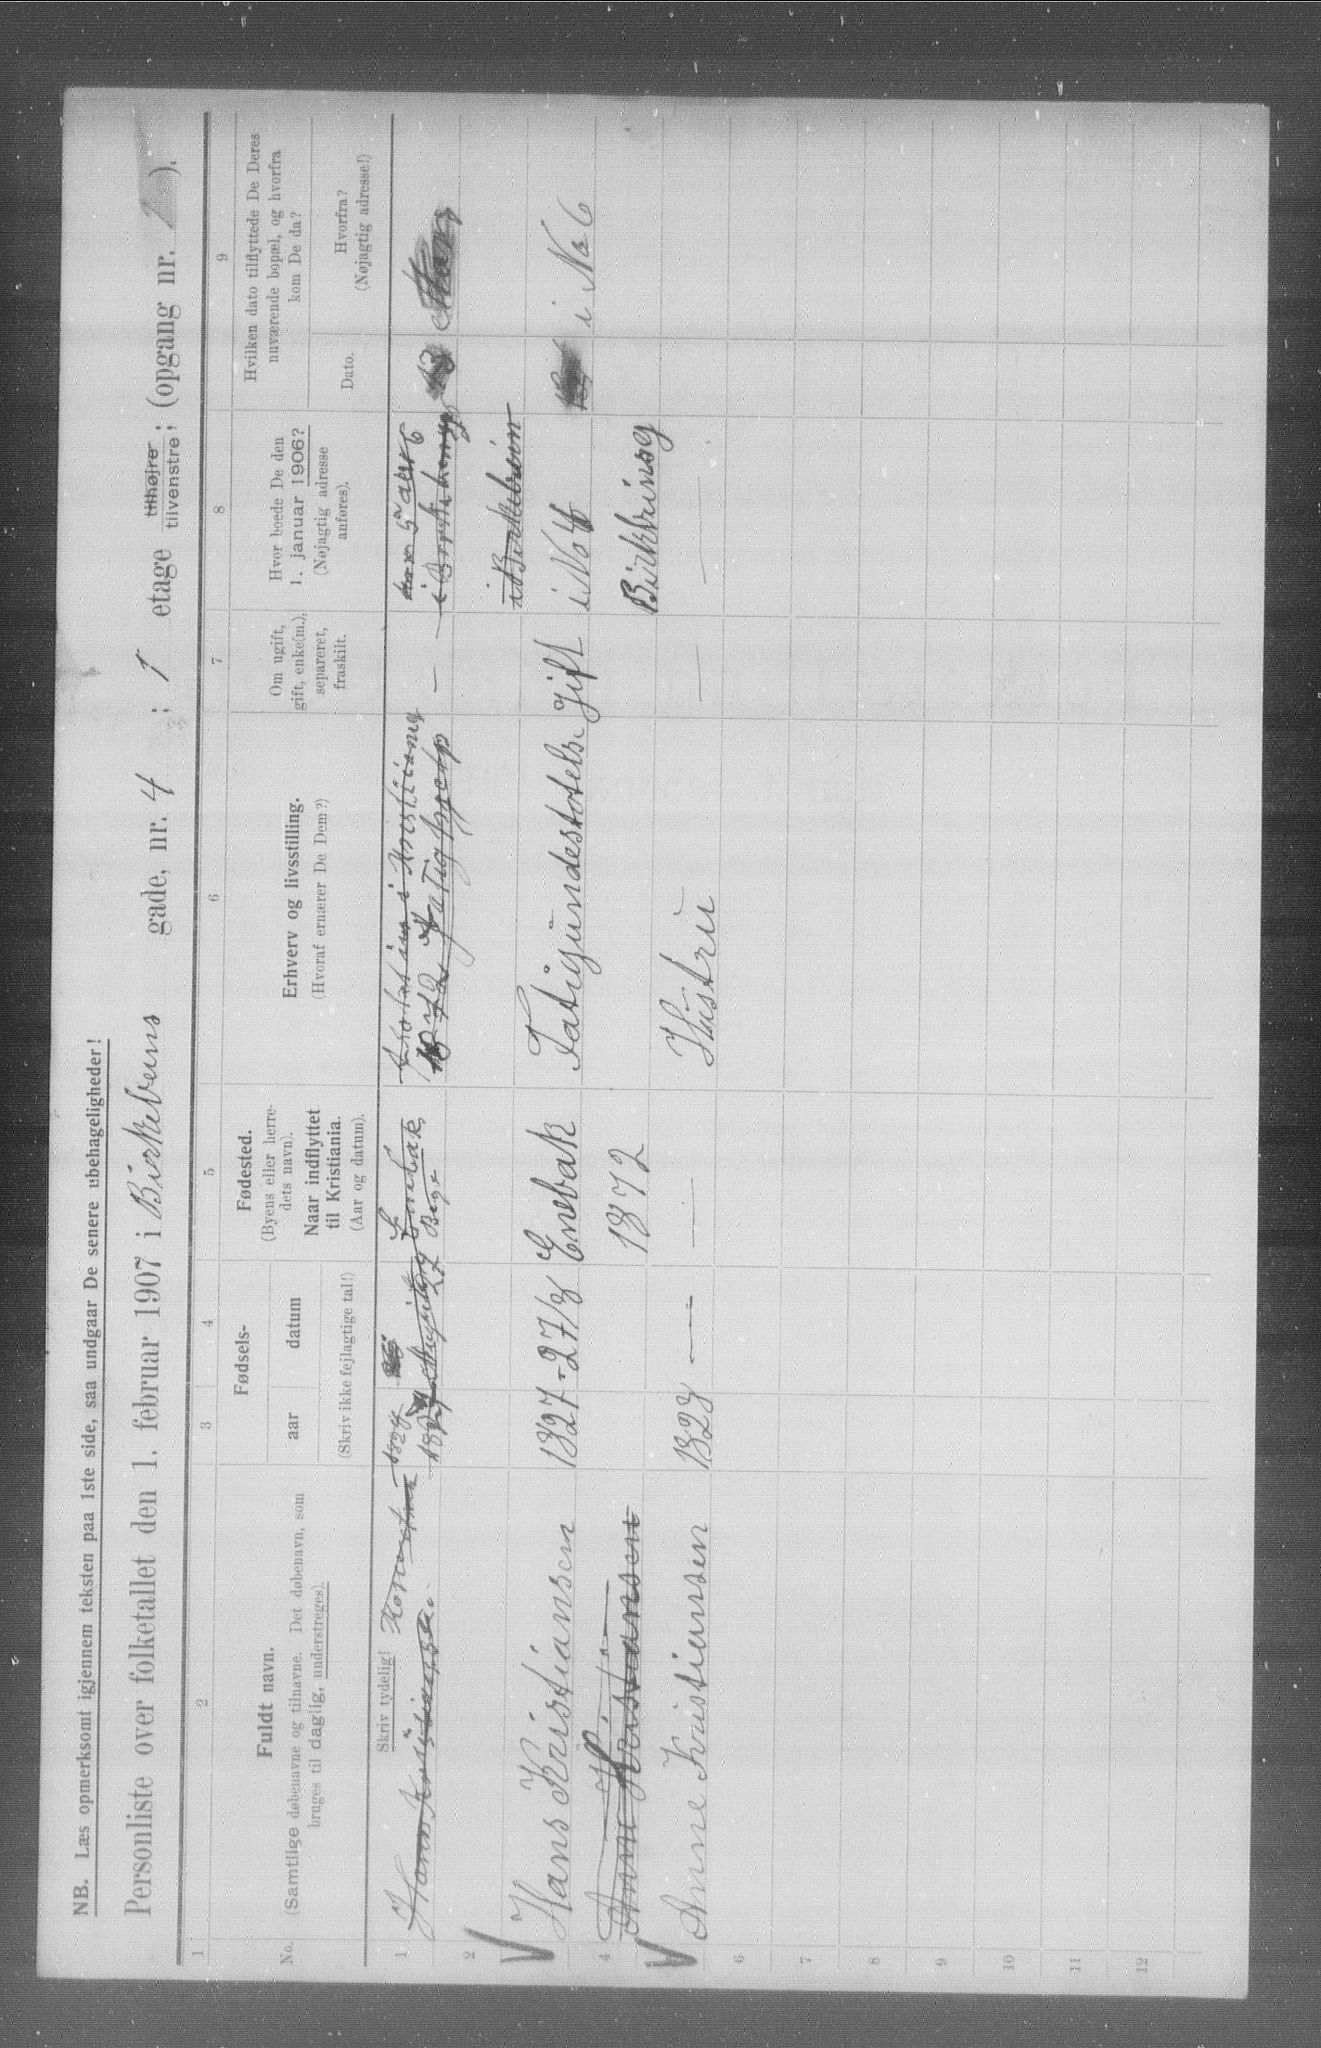 NB. Læs opmerksomt igjennem teksten paa 1ste side, saa undgaar De senere ubehageligheder!
Personliste over folketallet den 1. februar 1907 i Birkebens gade, nr. 4 ; 1 etage tilhøjre tilvenstre; (opgang nr. ).
1 2 3 4 5 6 7 8 9
No.
Fuldt navn.
(Samtlige døbenavne og tilnavne. Det døbenavn, som
bruges til daglig, understreges).
Fødsels-
aar datum
(Skriv ikke fejlagtige tal!)
Fødested.
(Byens eller herre-
dets navn).
Naar indflyttet
til Kristiania.
(Aar og datum).
Erhverv og livsstilling.
(Hvoraf ernærer De Dem?)
Om ugift,
gift, enke(m.),
separeret,
fraskilt.
Hvor boede De den
1. januar 1906?
(Nøjagtig adresse
anføres).
Hvilken dato tilflyttede De Deres
nuværende bopæl, og hvorfra
kom De da?
Dato.
Hvorfra?
(Nøjagtig adresse!)
Skriv tydelig!
1 Hans Enebak
2
Hans Kristiansen 1827 - 27/8 Enebak Fatigundestotelse gift i No 4 i No 6
1872 Birkbeinsg
4 Anne Kristiansen
Anne Kristiensen 1828 — — Hustru — —
6
7
8
9
10
11
12